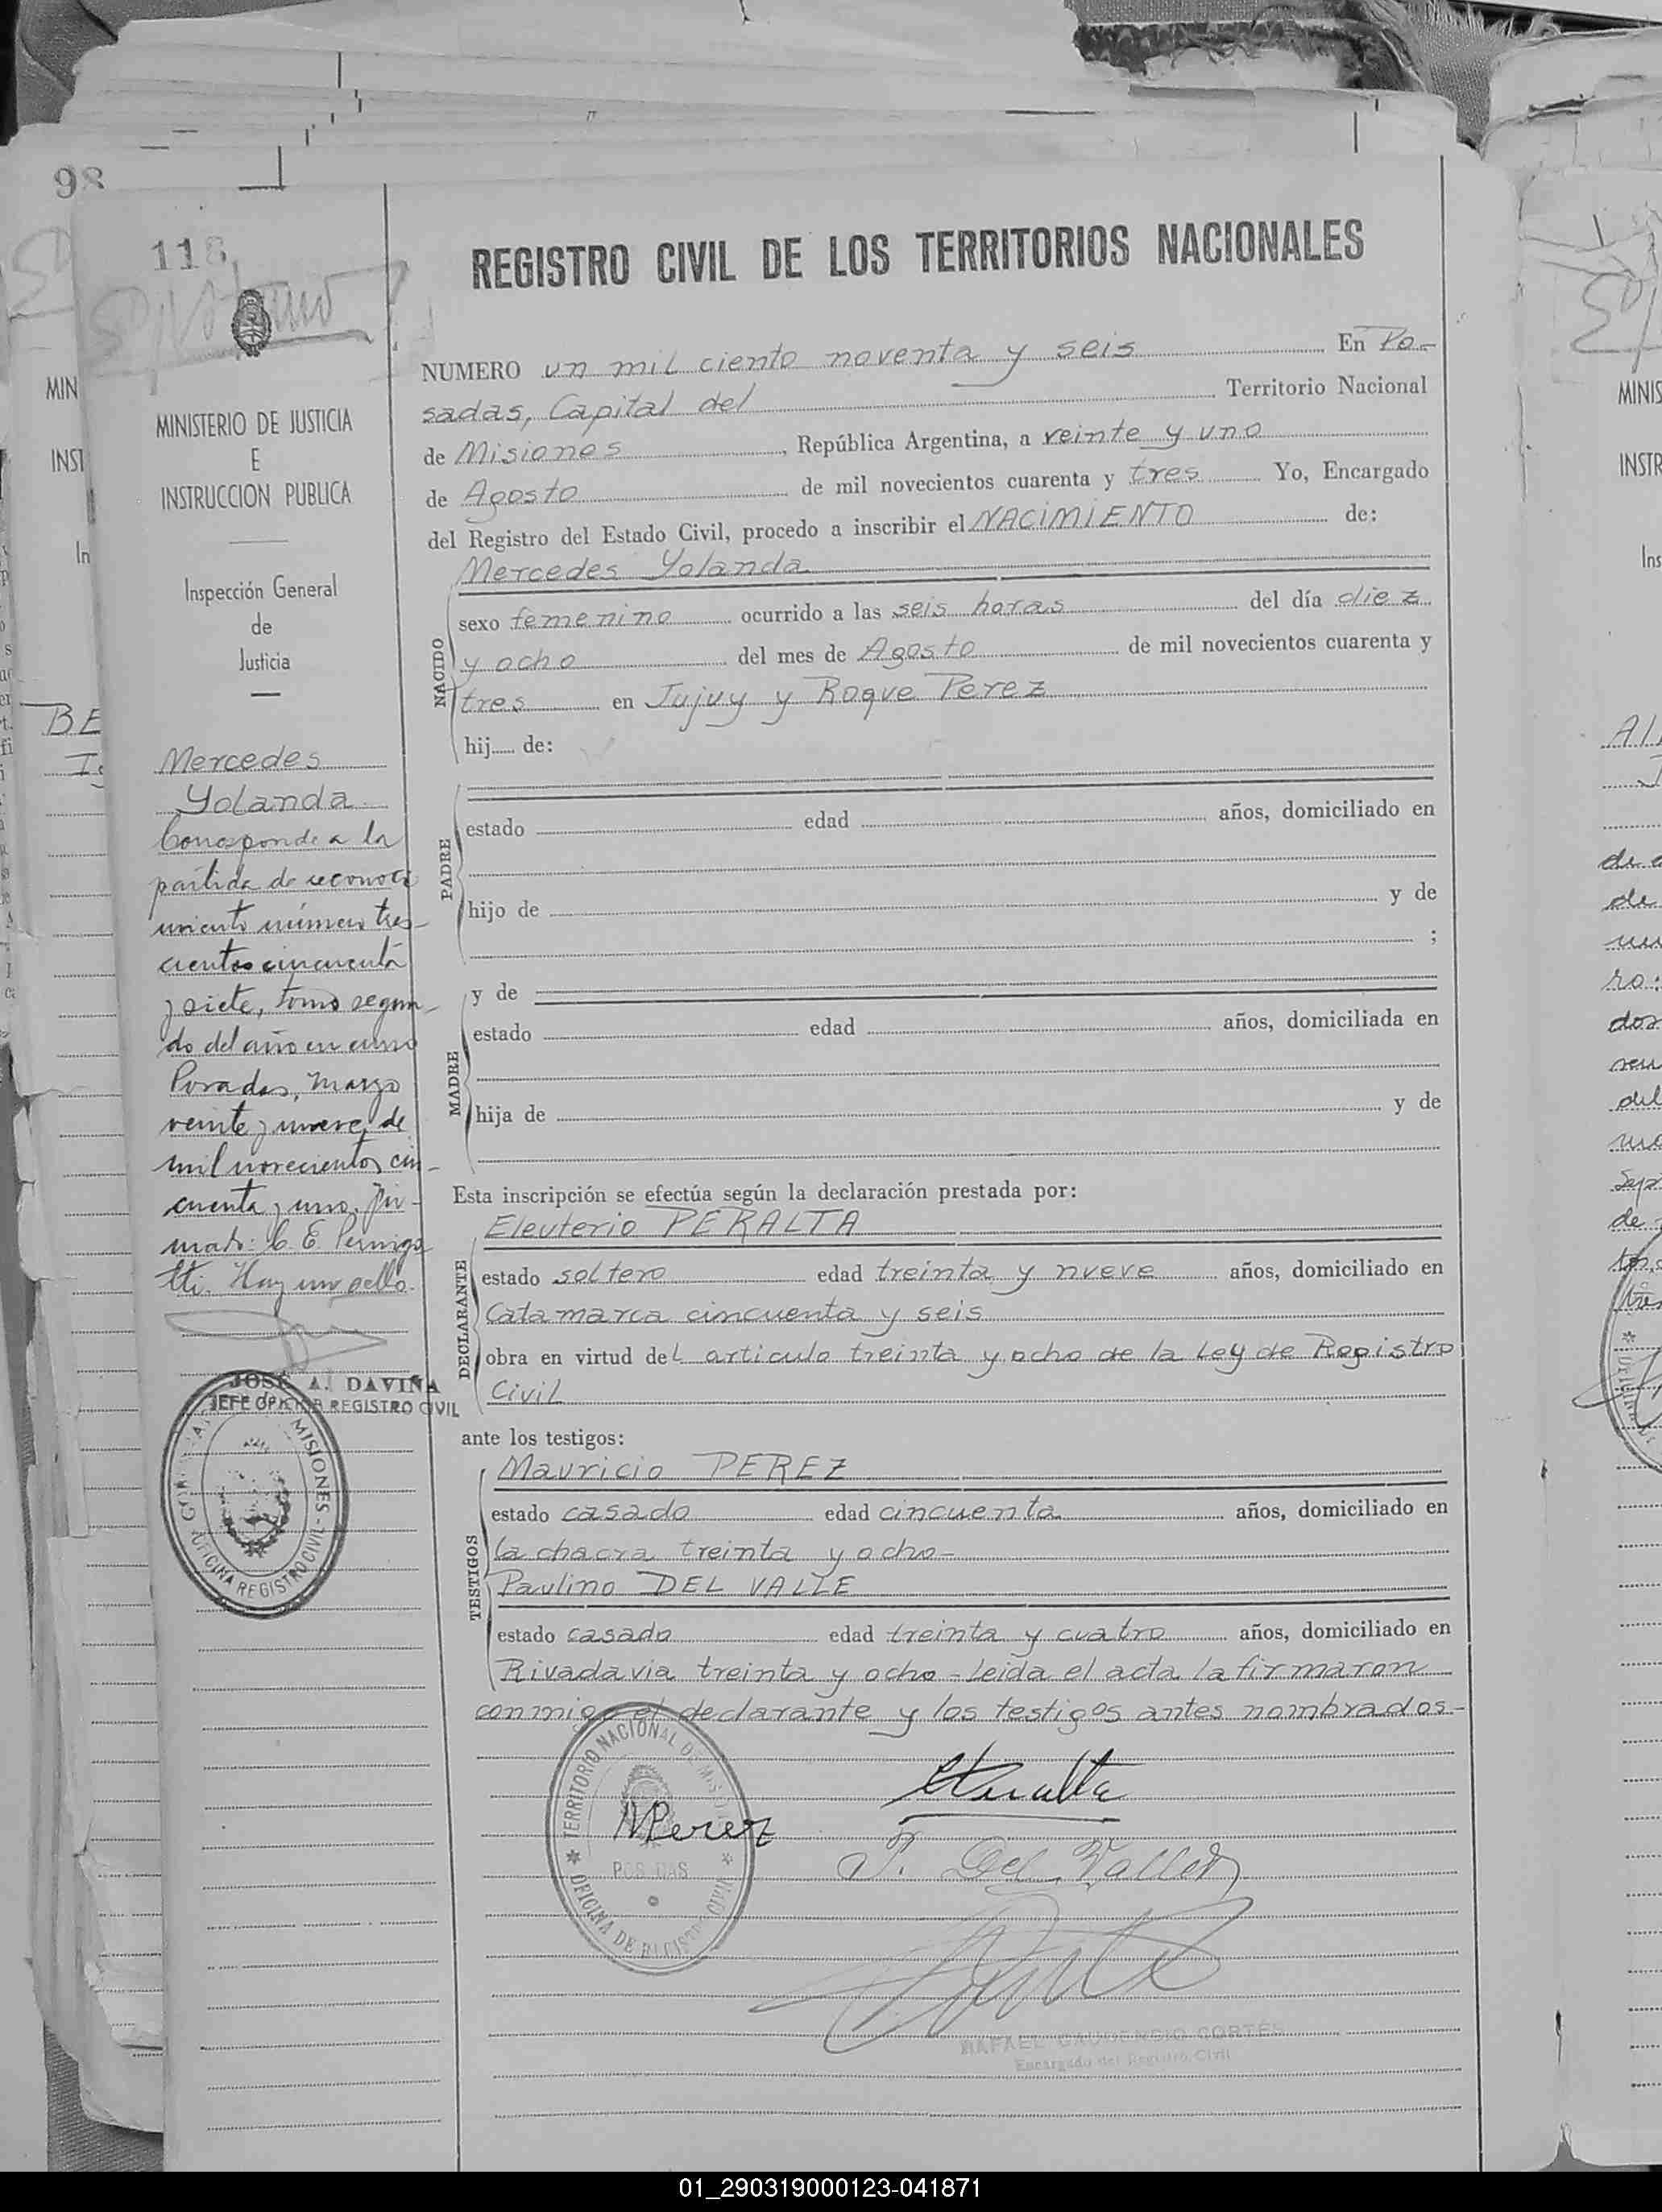 98
118
REGISTRO CIVIL DE LOS TERRITORIOS NACIONALES
MINISTERIO DE JUSTICIA
E
INSTRUCCION PUBLICA
Inspección General
de
Justicia
Mercedes
Yolanda
Corresponde a la
partida de reconoci
miento número tres-
cientos cincuenta
y siete, tomo segun-
do del año en curso
Posadas, Marzo
veinte y nueve de
mil novecientos cin-
cuenta y uno. Fir-
mado: C. E. Perniga
tti. Hay un sello.
JOSÉ A. DAVIÑA
JEFE OFICINA REGISTRO CIVIL
MISIONES - OFICINA REGISTRO CIVIL
NUMERO un mil ciento noventa y seis En Po-
sadas, Capital del Territorio Nacional
de Misiones, República Argentina, a veinte y uno
de Agosto de mil novecientos cuarenta y tres Yo, Encargado
del Registro del Estado Civil, procedo a inscribir el NACIMIENTO de:
NACIDO
Mercedes Yolanda
sexo femenino ocurrido a las seis horas del día diez
y ocho del mes de Agosto de mil novecientos cuarenta y
tres en Jujuy y Roque Perez
hij de:
PADRE
estado edad años, domiciliado en
hijo de y de
;
MADRE
y de
estado edad años, domiciliada en
hija de y de
Esta inscripción se efectúa según la declaración prestada por:
DECLARANTE
Eleuterio PERALTA
estado soltero edad treinta y nueve años, domiciliado en
Catamarca cincuenta y seis
obra en virtud del articulo treinta y ocho de la Ley de Registro
Civil
ante los testigos:
TESTIGOS
Mauricio PEREZ
estado casado edad cincuenta años, domiciliado en
la chacra treinta y ocho-
Paulino DEL VALLE
estado casado edad treinta y cuatro años, domiciliado en
Rivadavia treinta y ocho - leida el acta la firmaron
conmigo el declarante y los testigos antes nombrados-
TERRITORIO NACIONAL DE MISIONES
POSADAS
OFICINA DE REGISTRO CIVIL
EPeralta
MPerez
P. Del Valle
RAFAEL GAUDENCIO CORTÉS
Encargado del Registro Civil
01_290319000123-041871